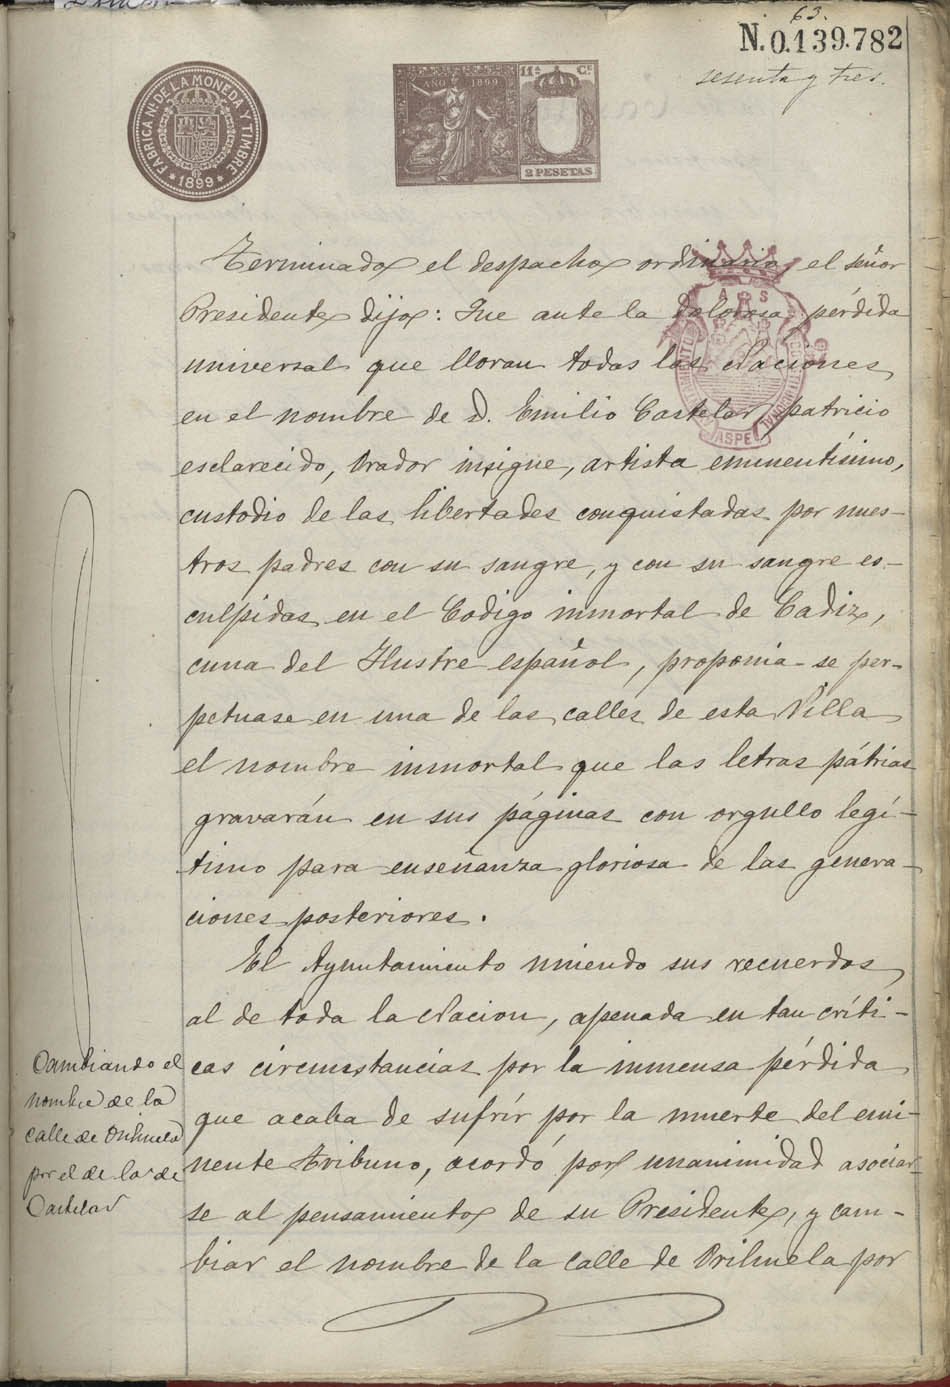 63.
N.0.139.782
sesenta y tres.
FABRICA Nl. DE LA MONEDA Y TIMBRE
* 1899 *
AÑO 1899
11ª CE
2 PESETAS
Terminado el despacho ordinario el señor
Presidente dijo: Que ante la dolorosa pérdida
universal que lloran todas las Naciones
en el nombre de D. Emilio Castelar patricio
esclarecido, Orador insigne, artista eminentísimo,
custodio de las libertades conquistadas por nues-
tros padres con su sangre, y con su sangre es-
culpidas en el Codigo inmortal de Cadiz,
cuna del Ilustre español, proponia se per-
petuase en una de las calles de esta Villa
el nombre inmortal que las letras pátrias
gravarán en sus páginas con orgullo legí-
timo para enseñanza gloriosa de las genera-
ciones posteriores.
El Ayuntamiento uniendo sus recuerdos
al de toda la Nacion, apenada en tan críti-
cas circunstancias por la inmensa pérdida
que acaba de sufrír por la muerte del emi-
nente Tribuno, acordó por unanimidad asociar-
se al pensamiento de su Presidente, y cam-
biar el nombre de la calle de Orihuela por
Cambiando el
nombre de la
calle de Orihuela
por el de la de
Castelar
ASPE